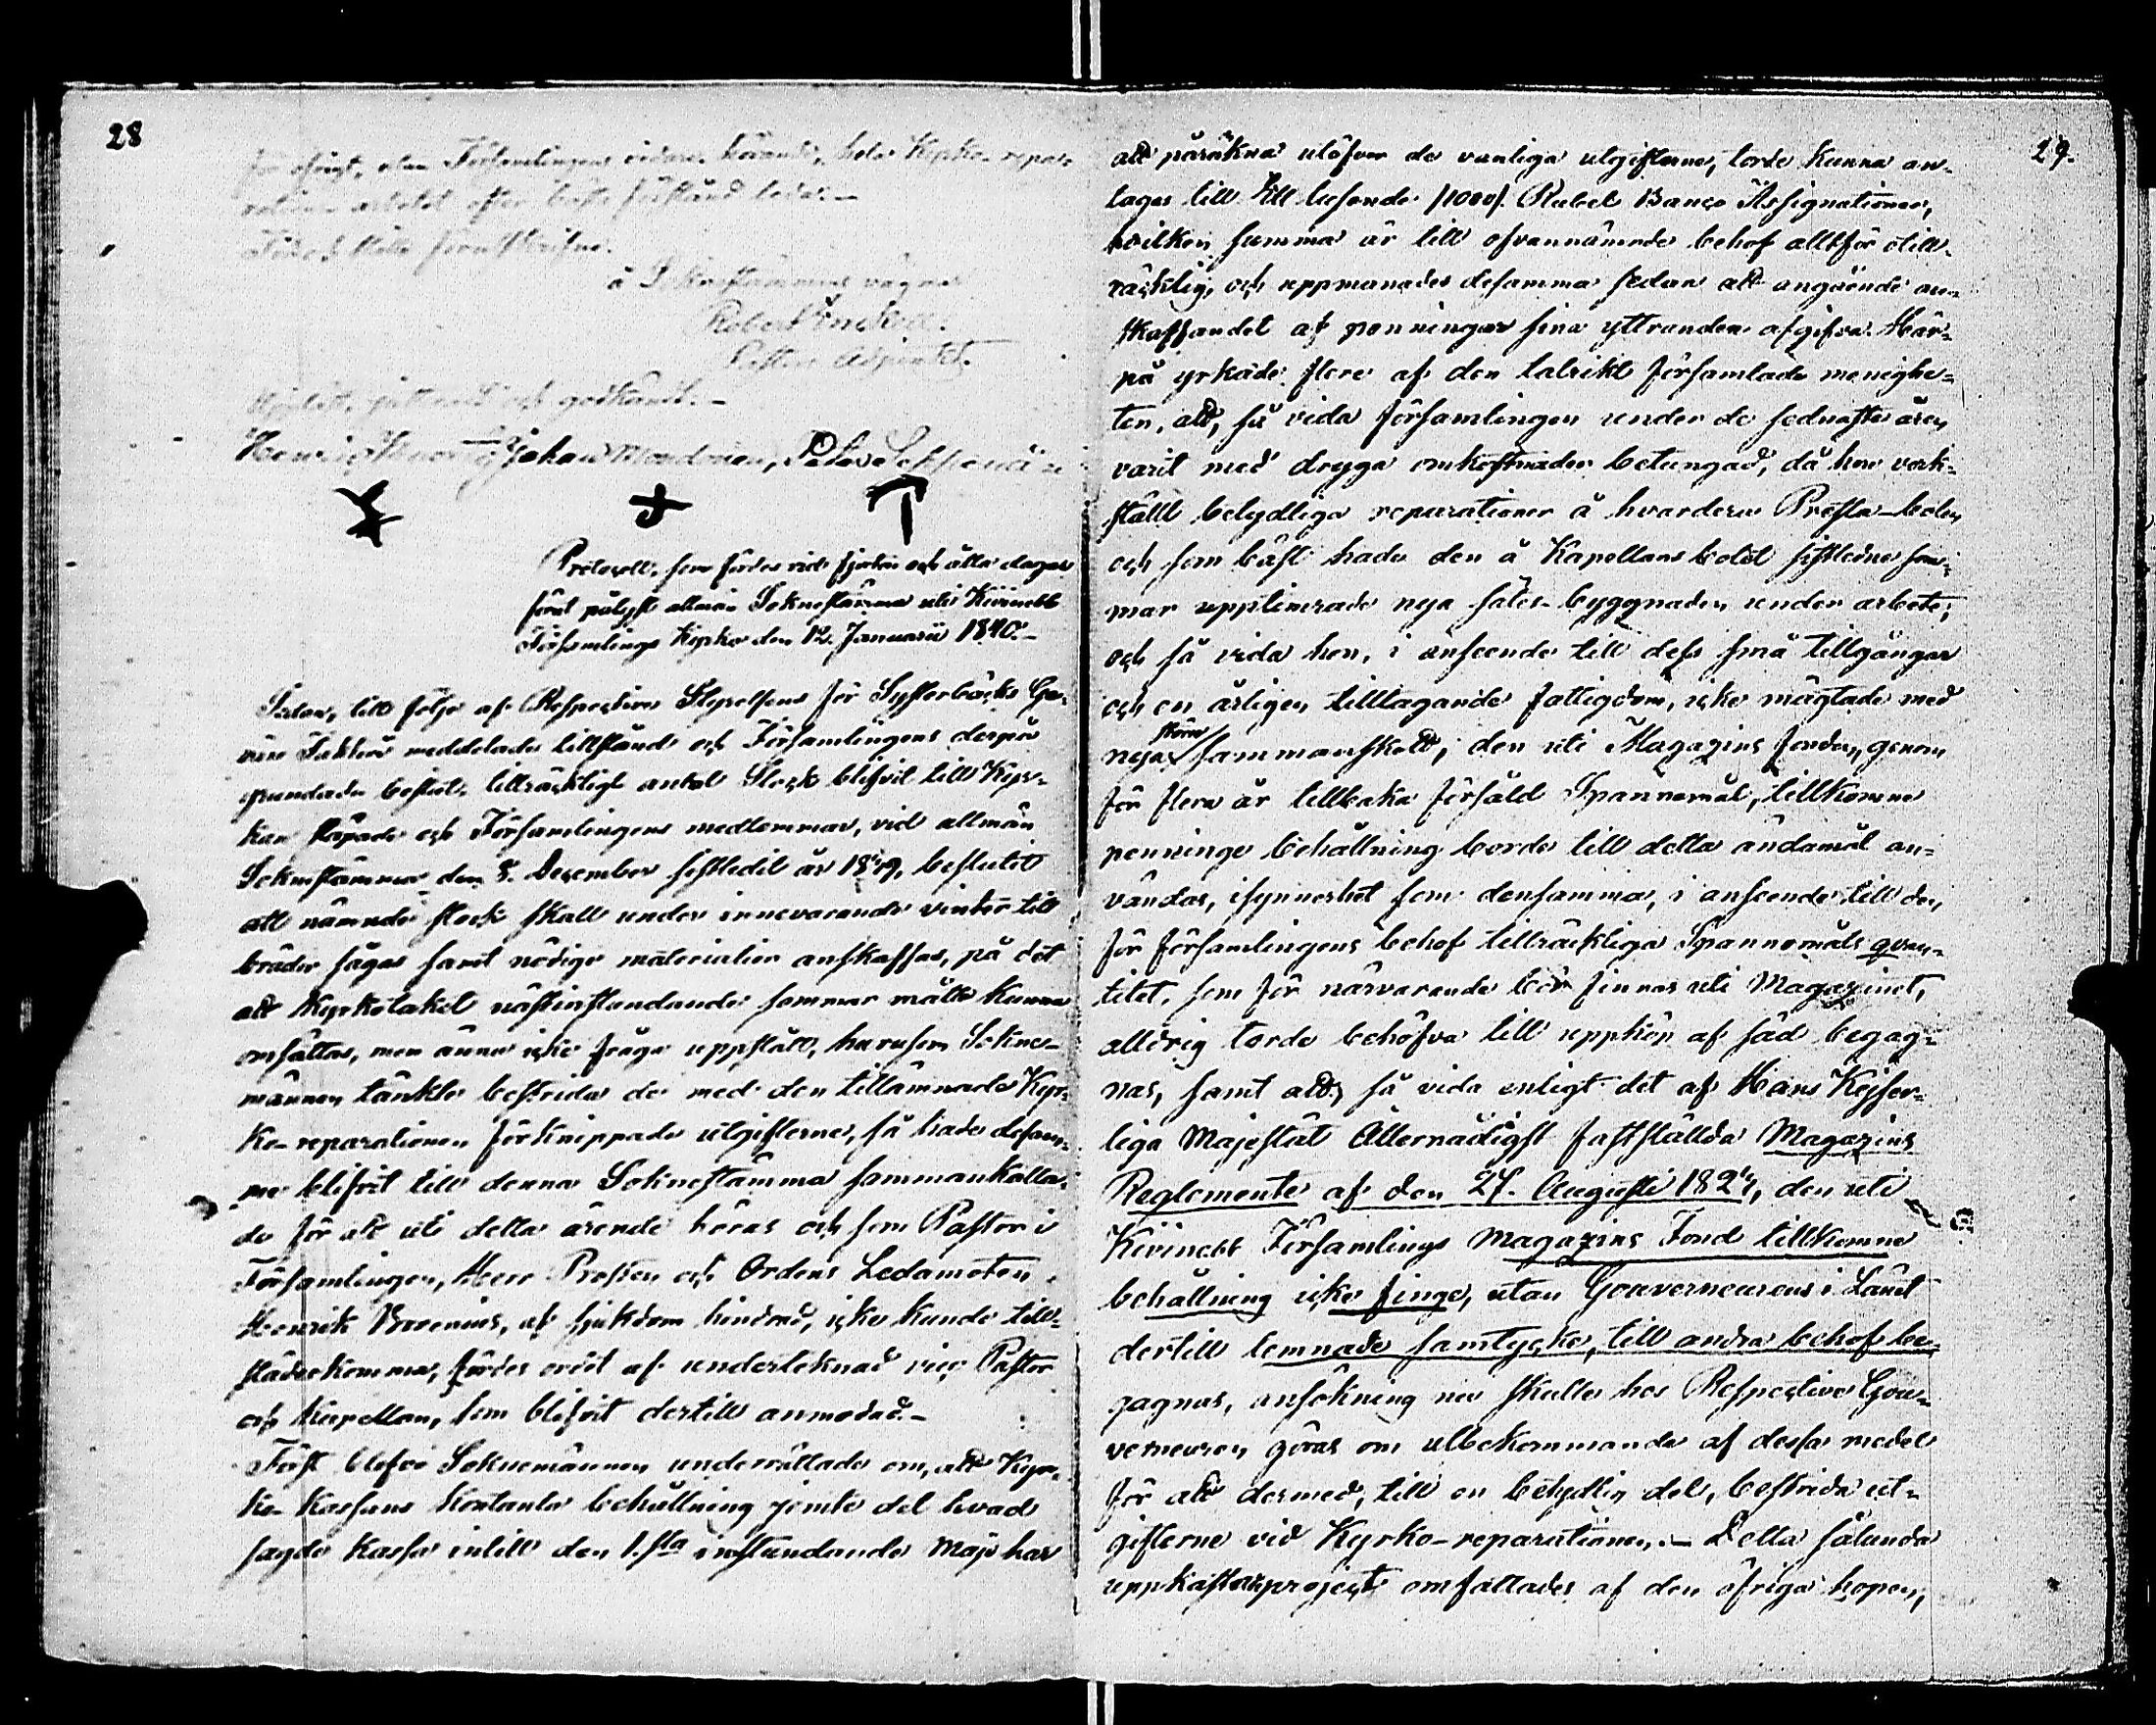 28
för öfrigt, utan Församlingens vidare hörande, hela Kyrko-repa-
rations arbetet efter bästa förstånd leda.–
Tid och ställe förutskrifne.
å Soknestämmans vägnar
Robert
Pastors Adjunctet.
Uppläst, justerad och godkänd.–
Henric Johan Peter
Protocoll, som fördes vid fjorton och åtta dagar
förut pålyst allmän Soknestämma uti Kivinebb
Församlings Kyrka den 12. Januarii 1840.–
Sedan, till följe af Respective Styrelsens för Systerbäcks Ge-
värs Faktori meddelade tillstånd och Församlingens derpå
grundade beslut, tillräckligt antal Stock blifvit till Kyr-
kan släpade och Församlingens medlemmar, vid allmän
Soknestämma den 8. December sistledit år 1839, beslutit
att nämnde stock skall under innevarande vinter till
bräder sågas samt nödige materialier anskaffas, på det
att Kyrkotaket nästinstundande sommar måtte kunna
omsättas, men ännu icke fråga uppstått, hurusom Sokne-
männen tänkte bestrida de med den tillämnade Kyr-
ko-reparationen förknippade utgifterne, så hade desam-
me blifvit till denna Soknestämma sammankalla-
de för att uti detta ärende höras och som Pastor i
Församlingen, Herr Prosten och Ordens Ledamoten
Henrik Borenius, af sjukdom hindrad, icke kunde till-
städeskomma, fördes ordet af undertecknad vice Pastor
och Kapellan, som blifvit dertill anmodad.–
Först blefvo Soknemännen underrättade om, att Kyr-
ko-Kassans kontanta behållning jemte det hvad
sagde Kassa intill den 1.sta instundande Maji har
29.
att påräkna utöfver de vanliga utgifterne, torde kunna an-
tagas till ett tusende /1000/. Rubel Banco Assignationer,
hvilken summa är till ofvannämnde behof alltför otill-
räcklig, och uppmanades desamma sedan att angående an-
skaffandet af penningar sina yttranden afgifva. Här-
på yrkade flere af den talrikt församlade menighe-
ten, att, så vida församlingen under de sednaste åren
varit med dryga omkostnader betungad, då hon verk-
ställt betydliga reparationer å hvardera Presta-bolen
och som bäst hade den å Kapellans bolet sistledne som-
mar upptimrade nya sätes-byggnaden under arbete;
och så vida hon, i anseende till dess små tillgångar
och en årligen tilltagande fattigdom, icke mägtade med
nya större sammanskott; den uti Magazins fonden, genom
för flera år tillbaka försåld Spannemål, tillkomne
penninge behållning borde till detta ändamål an-
vändas, isynnerhet som densamma, i anseende till den
för församlingens behof tillräckliga Spannemåls quan-
titet, som för närvarande bör finnas uti Magazinet,
alldrig torde behöfva till uppköp af säd begag-
nas, samt att, så vida enligt det af Hans Kejser-
liga Majestät Allernådigst fastställda Magazins
Reglemente af den 24. Augusti 1824, den uti
Kivinebb Församlings Magazins Fond tillkomne
behållning icke finge, utan Gouverneurens i Länet
dertill lemnade samtycke, till andra behof be-
gagnas, ansökning nu skulle hos Respective Gou-
verneuren göras om utbekommande af dessa medel
för att dermed, till en betydlig del, bestrida ut-
gifterne vid Kyrko-reparationen.– Detta sålunda
uppkastade project omfattades af den öfriga hopen,